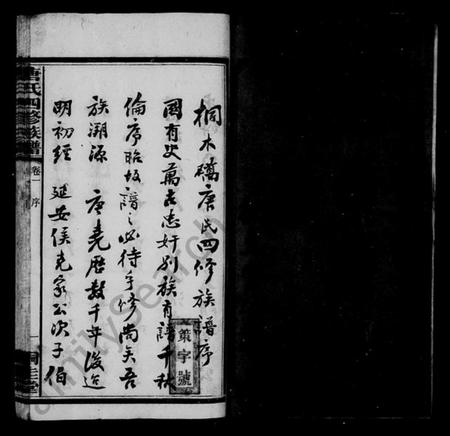 桐木礄唐氏四修族譜序
國有史萬古忠奸別族有譜千秋
倫序昭故譜之必待乎修尚矣吾
族溯源 唐堯歷數千年後迨
明初經 延安侯克家公次子伯
策字號
唐氏四修族譜
卷一 序
FamilySearch